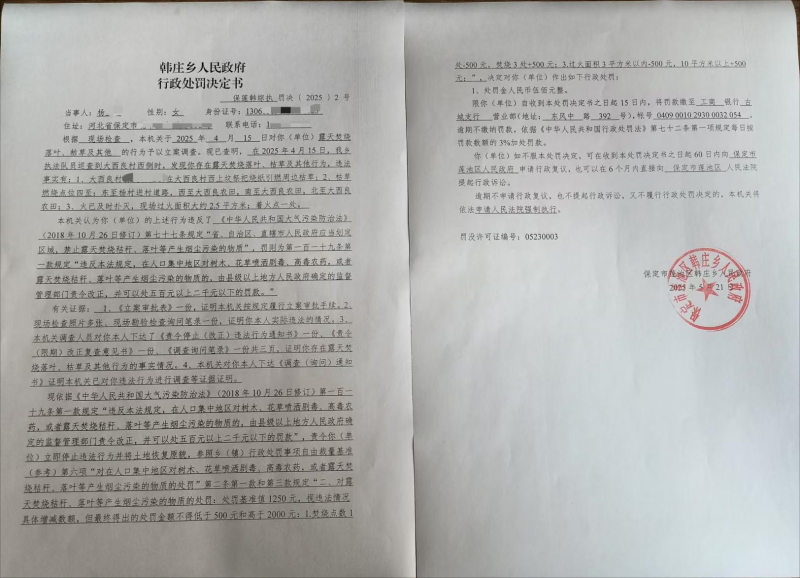 韩庄乡人民政府
行政处罚决定书
保莲韩综执 罚决〔2025〕2 号
当事人：杨 性别：女 身份证号：1306
住址：河北省保定市 联系电话：1
根据 现场检查 ，本机关于 2025 年 4 月 15 日对你(单位)露天焚烧
落叶、枯草及其他 的行为予以立案调查。现已查明，在2025年4月15日，我乡
热法队员巡查到大西良村西侧时，发现你存在露天焚烧落叶、枯草及其他行为，违法
事实有：1、大西良村 在大西良村西上坟祭祀烧纸引燃周边枯草；2、枯草
燃烧点位四至：东至杨村进村道路，西至大西良农田，南至大西良农田，北至大西良
农田；3、火已及时扑灭，现场过火面积大约2.5平方米；着火点一处。
本机关认为你（单位）的上述行为违反了《中华人民共和国大气污染防治法》
（2018年10月26日修订）第七十七条规定“省、自治区、直辖市人民政府应当划定区
域，禁止露天焚烧秸秆、落叶等产生烟尘污染的物质”，罚则为第一百一十九条第
一款规定“违反本法规定，在人口集中地区对树木、花草喷洒剧毒、高毒农药，或者露
天焚烧秸秆、落叶等产生烟尘污染的物质的，由县级以上地方人民政府确定的监督
管理部门责令改正，并可以处五百元以上二千元以下的罚款。”
有关证据：1、《立案审批表》一份，证明本机关按规定履行立案审批手续。2、
现场检查照片多张、现场勘验检查询问笔录一份，证明你本人实际违法的情况。3、
本机关调查人员对你本人下达了《责令停止（改正）违法行为通知书》一份、《责令
（限期）改正复查意见书》一份、《调查询问笔录》一份共三页，证明你存在露天焚
烧落叶、枯草及其他行为的事实情况。4、本机关对你本人下达《调查（询问）通知
书》证明本机关已对你违法行为进行调查等证据证明。
现依据《中华人民共和国大气污染防治法》（2018年10月26日修订）第一百一
十九条第一款规定“违反本法规定，在人口集中地区对树木、花草喷洒剧毒、高毒农
药，或者露天焚烧秸秆、落叶等产生烟尘污染的物质的，由县级以上地方人民政府确
定的监督管理部门责令改正，并可以处五百元以上二千元以下的罚款”，责令你（单
位）立即停止违法行为并将土地恢复原貌，参照乡（镇）行政处罚事项自由裁量基准
（参考）第六项“对在人口集中地区对树木、花草喷洒剧毒、高毒农药，或者露天焚
烧秸秆、落叶等产生烟尘污染的物质的处罚”第二条第一款和第三款规定“二、对露
天焚烧秸秆、落叶等产生烟尘污染的物质的处罚：处罚基准值1250元，视违法情况
具体增减数额，但最终得出的处罚金额不得低于500元和高于2000元：1.焚烧点数1
处-500元，焚烧3处+500元；3.过火面积3平方米以内-500元，10平方米以上+500
元；”，决定对你（单位）作出如下行政处罚：
1、处罚金人民币伍佰元整。
限你（单位）自收到本处罚决定书之日起15日内，将罚款缴至 工商 银行 古
城支行 营业部(地址：东风中 路 392 号)，帐号 0409 0010 2930 0032 054 。
逾期不缴纳罚款，依据《中华人民共和国行政处罚法》第七十二条第一项规定每日按
罚款数额的 3%加处罚款。
你（单位）如不服本处罚决定，可在收到本处罚决定书之日起60日内向 保定市
莲池区人民政府 申请行政复议，也可以在6个月内直接向 保定市莲池区 人民法院
提起行政诉讼。
逾期不申请行政复议，也不提起行政诉讼，又不履行行政处罚决定的，本机关将
依法申请人民法院强制执行。
罚没许可证编号：05230003
保定市莲池区韩庄乡人民政府
2025 年 5 月 21 日
保定市莲池区韩庄乡人民政府